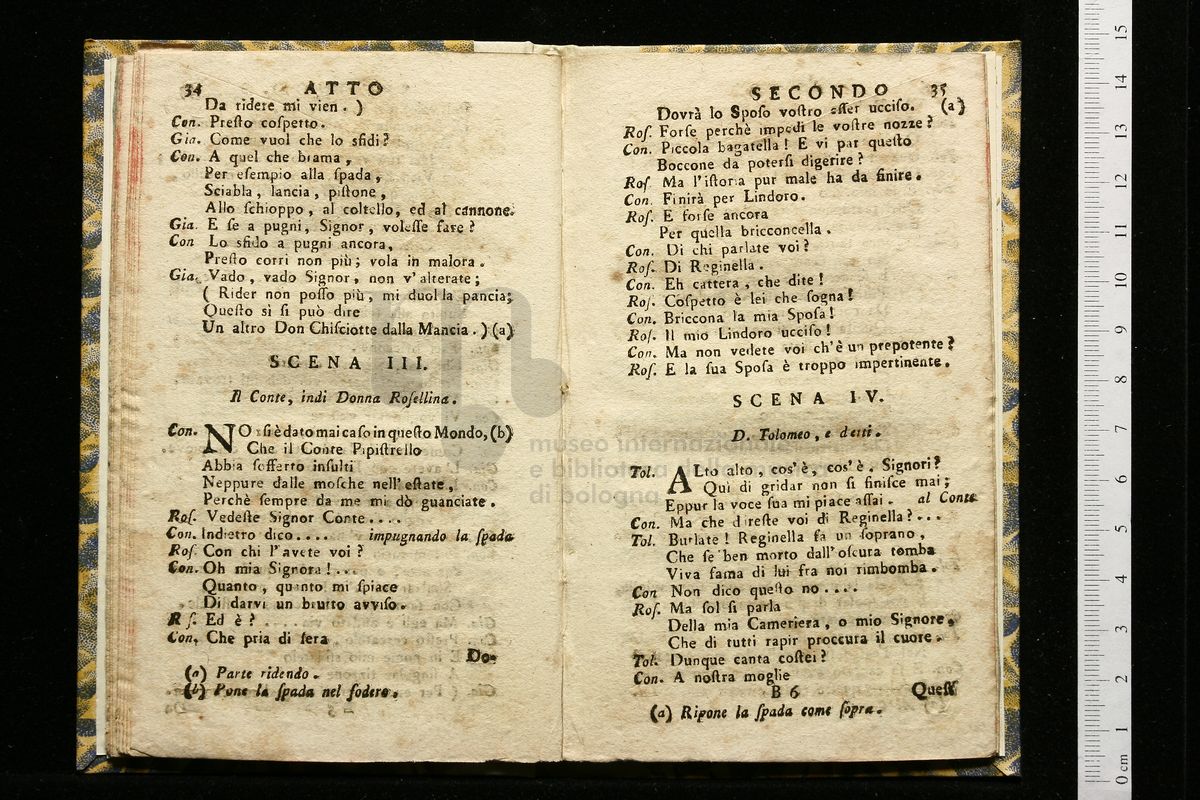 34 ATTO
Da ridere mi vien. )
Con. Presto cospetto.
Gia. Come vuol che lo sfidi?
Con. A quel che brama,
Per esempio alla spada,
Sciabla, lancia, pistone,
Allo schioppo, al coltello, ed al cannone.
Gia. E se a pugni, Signor, volesse fare?
Con Lo sfido a pugni ancora,
Presto corri non più; vola in malora.
Gia. Vado, vado Signor, non v'alterate;
( Rider non posso più, mi duol la pancia;
Questo sì si può dire
Un altro Don Chisciotte dalla Mancia. ) (a)
SCENA III.
Il Conte, indi Donna Rosellina.
Con. NOn si è dato mai caso in questo Mondo, (b)
Che il Conte Pipistrello
Abbia sofferto insulti
Neppure dalle mosche nell'estate,
Perchè sempre da me mi dò guanciate.
Ros. Vedeste Signor Conte....
Con. Indietro dico.... impugnando la spada
Ros. Con chi l'avete voi?
Con. Oh mia Signora!...
Quanto, quanto mi spiace
Di darvi un brutto avviso.
R s. Ed è?
Con. Che pria di sera
Do-
(a) Parte ridendo.
(b) Pone la spada nel fodero.
SECONDO 35
Dovrà lo Sposo vostro esser ucciso. (a)
Ros. Forse perchè impedì le vostre nozze?
Con. Piccola bagatella! E vi par questo
Boccone da potersi digerire?
Ros. Ma l'istoria pur male ha da finire.
Con. Finirà per Lindoro.
Ros. E forse ancora
Per quella bricconcella.
Con. Di chi parlate voi?
Ros. Di Reginella.
Con. Eh cattera, che dite!
Ros. Cospetto è lei che sogna!
Con. Briccona la mia Sposa!
Ros. Il mio Lindoro ucciso!
Con. Ma non vedete voi ch'è un prepotente?
Ros. E la sua Sposa è troppo impertinente.
SCENA IV.
D. Tolomeo, e detti.
Tol. ALto alto, cos'è, cos'è, Signori?
Quì di gridar non si finisce mai;
Eppur la voce sua mi piace assai. al Conte
Con. Ma che direste voi di Reginella?...
Tol. Burlate! Reginella fà un soprano,
Che se ben morto dall'oscura tomba
Viva fama di lui fra noi rimbomba.
Con Non dico questo no....
Ros. Ma sol si parla
Della mia Cameriera, o mio Signore,
Che di tutti rapir proccura il cuore.
Tol. Dunque canta costei?
Con. A nostra moglie
B 6 Quest
(a) Ripone la spada come sopra.
museo internazionale
e biblioteca
di bologna
0 cm 1 2 3 4 5 6 7 8 9 10 11 12 13 14 15